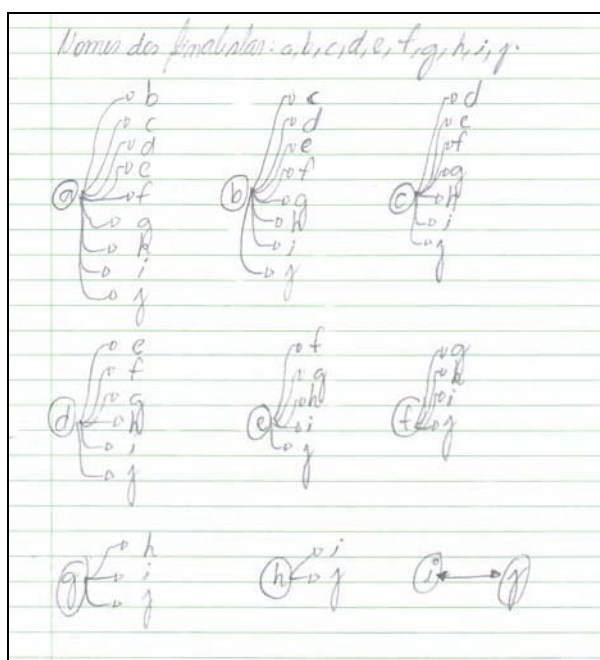 Nomes dos finalistas: a, b, c, d, e, f, g, h, i, j.
b
c
d
e
a f
g
h
i
j
c
d
e
f
b g
h
i
j
d
e
f
g
c h
i
j
e
f
g
d h
i
j
f
g
h
e i
j
g
h
i
f j
h
g i
j
i
h j
i j